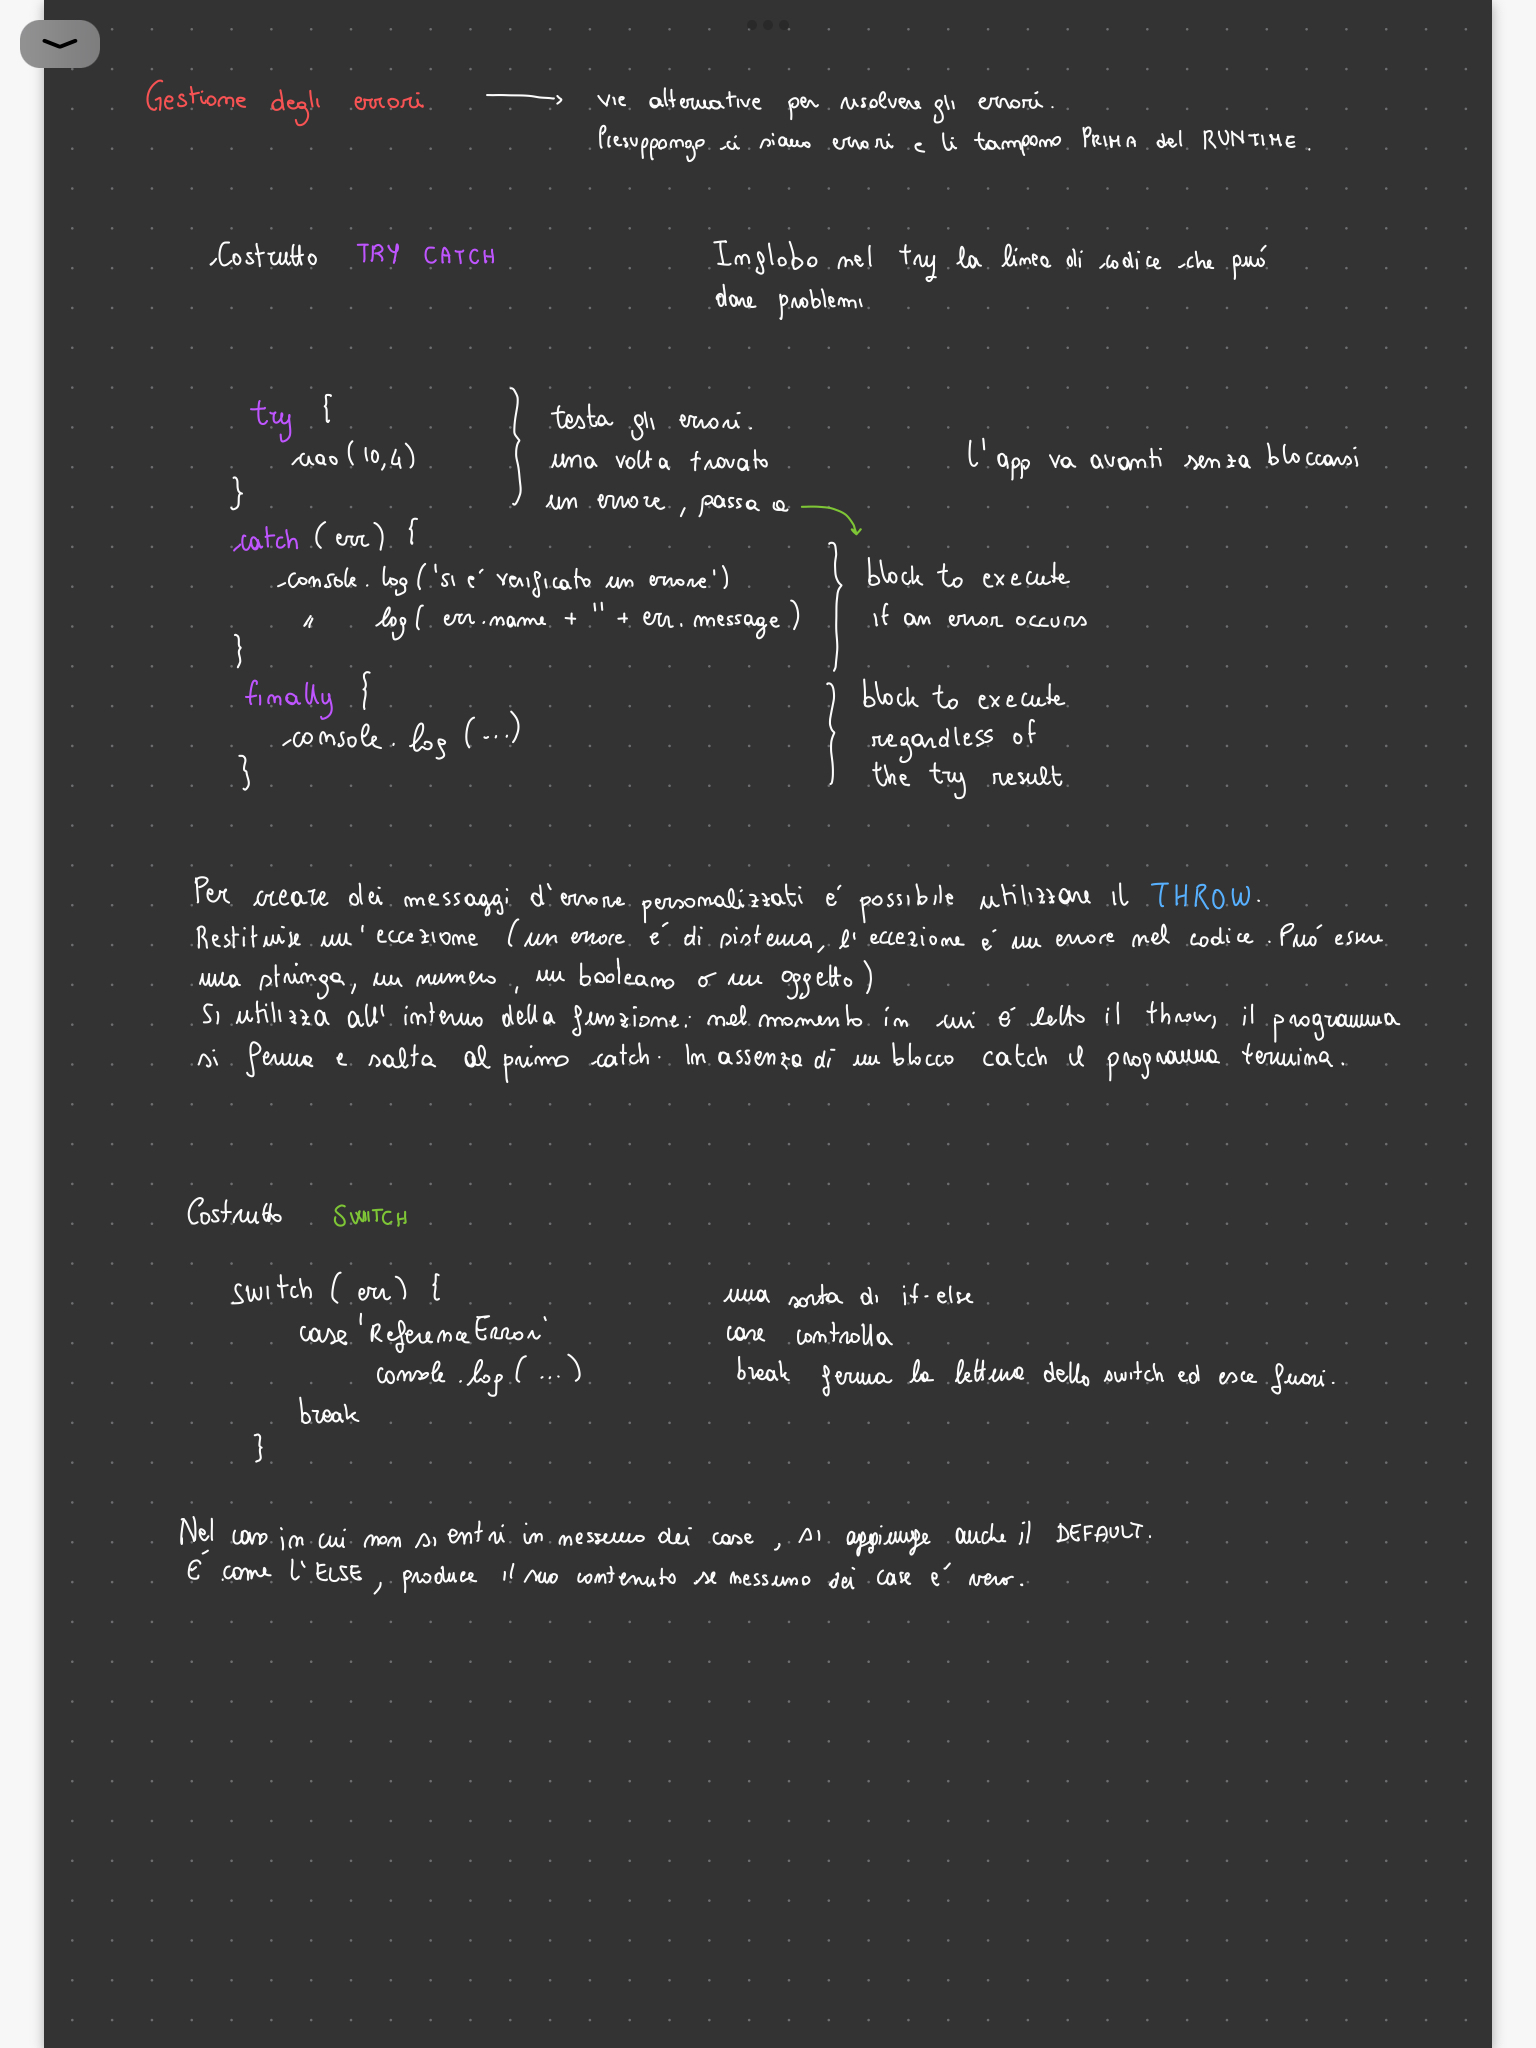 Gestione degli errori → vie alternative per risolvere gli errori.
Presuppongo ci siano errori e li tampono PRIMA del RUNTIME.
Costrutto TRY CATCH
Inglobo nel try la linea di codice che può
dare problemi
try {
ciao (10,4)
}
testa gli errori.
una volta trovato
un errore, passa a
l'app va avanti senza bloccarsi
catch (err) {
console.log ('si é verificato un errore')
" log( err.name + '' + err.message )
}
block to execute
if an error occurs
finally {
console.log (...)
}
block to execute
regardless of
the try result
Per creare dei messaggi d'errore personalizzati é possibile utilizzare il THROW.
Restituise un'eccezione (un errore é di sistema, l'eccezione é un errore nel codice. Puó essere
una stringa, un numero, un booleano o un oggetto)
Si utilizza all'interno della funzione: nel momento in cui é letto il throw, il programma
si ferma e salta al primo catch. In assenza di un blocco catch il programma termina.
Costrutto SWITCH
switch (err) {
case 'ReferenceError'
console.log (...)
break
}
una sorta di if-else
case controlla
break ferma la lettura dello switch ed esce fuori.
Nel caso in cui non si entri in nessuno dei case, si aggiunge anche il DEFAULT.
É come l'ELSE, produce il suo contenuto se nessuno dei case é vero.